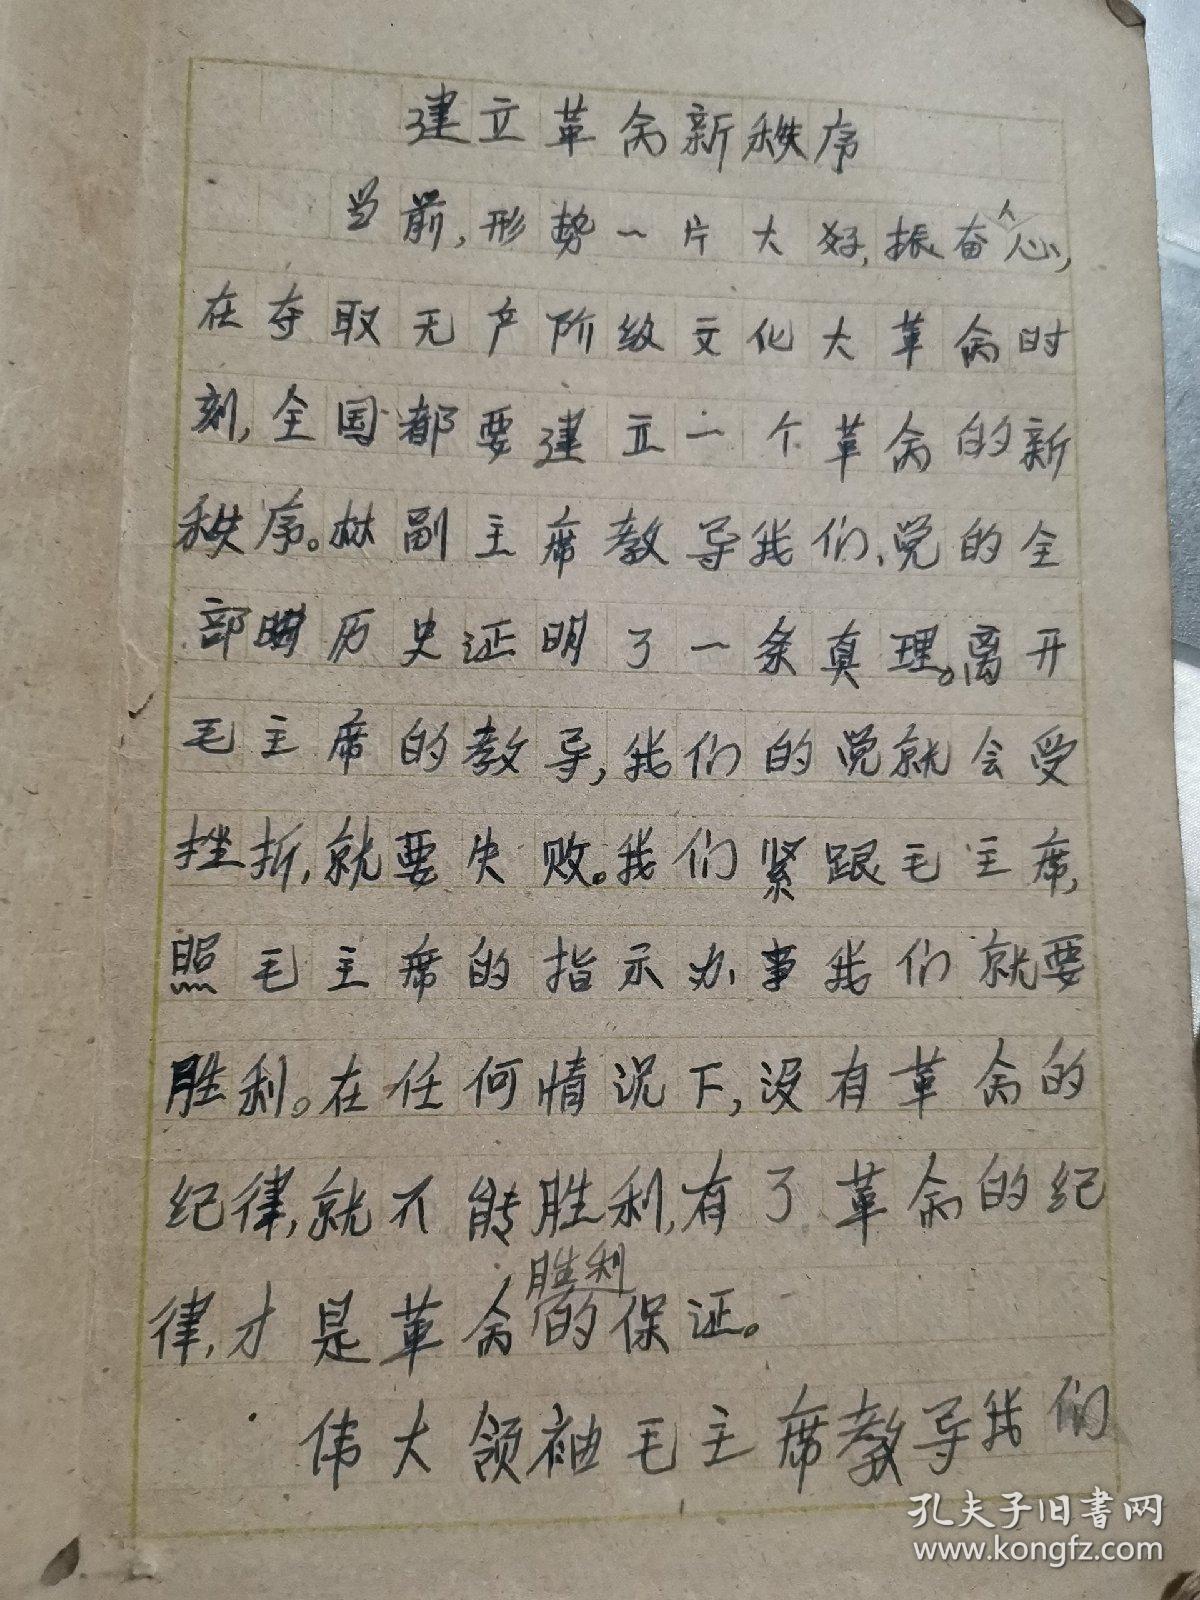 建立革命新秩序
当前,形势一片大好,振奋人心,
在夺取无产阶级文化大革命时
刻,全国都要建立一个革命的新
秩序。林副主席教导我们、党的全
部历史证明了一条真理。离开
毛主席的教导,我们的党就会受
挫折,就要失败。我们紧跟毛主席,
照毛主席的指示办事我们就要
胜利。在任何情况下,没有革命的
纪律,就不能胜利,有了革命的纪
律,才是革命胜利的保证。
伟大领袖毛主席教导我们
孔夫子旧书网
www.kongfz.com